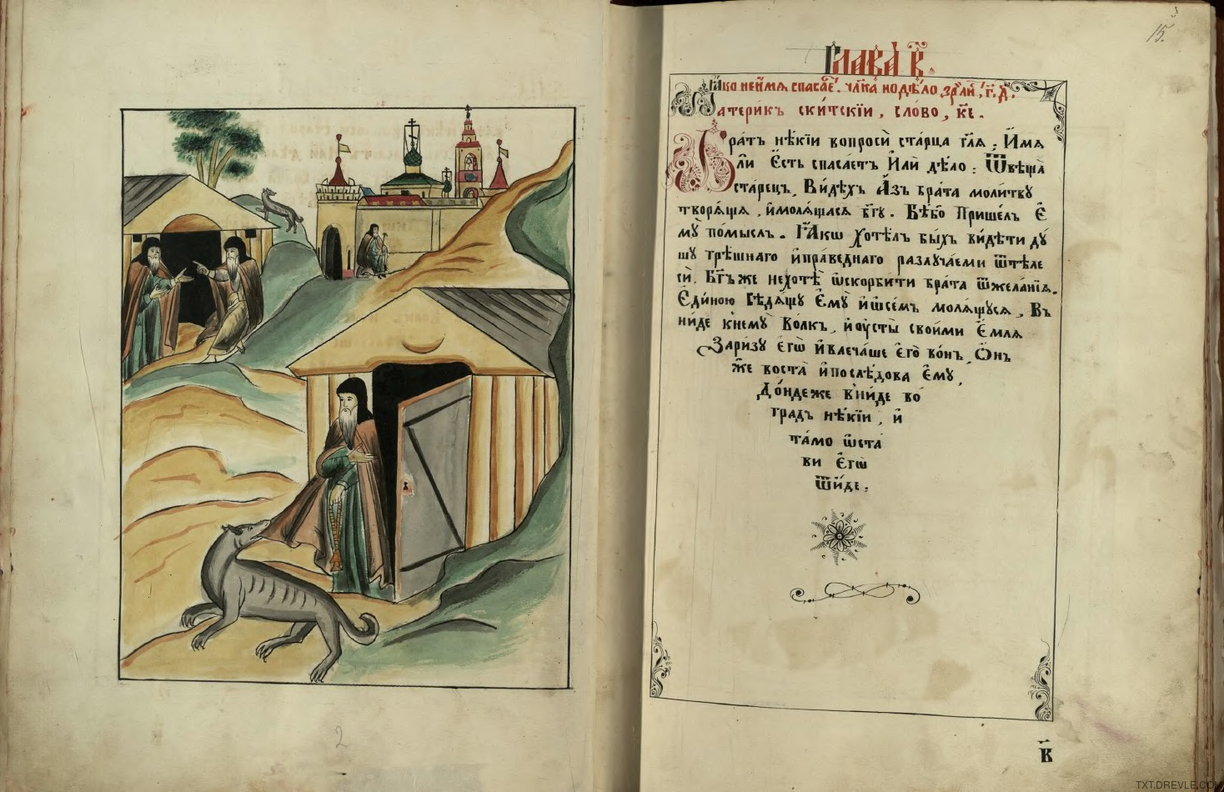 15.
Глава в҃.
Ꙗко неимя спасае҃. чл҃ка но дѣло, зрі҆ лӣ, г҃. д҃.
Патерикъ ски́тскїи, сло́во, к҃є.
Братъ нѣ́кїи вопроси̏ ста́рца гл҃ѧ: И҆мѧ
ли̏ є҆сть спаса́етъ и҆лѝ дѣ́ло: ѿвѣща̀
ста́рецъ, ви́дѣхъ а҆́зъ бра́та моли́тву
творѧ́ща, и҆молѧ́щасѧ бг҃у. бѣ́бо прише́лъ є҆
мꙋ̀ по́мыслъ. Ꙗкѡ хотѣ́лъ бы́хъ ви́дѣти дꙋ
шꙋ грѣ́шнаго и҆пра́веднаго разлꙋча́еми ѿтѣле
сѝ. бг҃ъ же нехотѣ̀ ѡ҆скорби́ти бра́та ѿжела́нїѧ.
є҆ди́ною сѣдѧ́щꙋ є҆мꙋ̀ и҆ѡ҆се́мъ молѧ́щꙋсѧ, въ
ни́де кнемꙋ̀ во́лкъ, и҆ оу҆сты̀ свои́ми є҆млѧ
за ри́зꙋ є҆гѡ̀ и҆влеча́ше є҆го̀ во́нъ, ѻ҆́нъ
же воста̀ и҆послѣ́дова є҆мꙋ̀,
до́ндеже вни́де во
гра́дъ нѣ́кїи, и҆
та́мо ѡ҆ста
ви є҆гѡ̀
ѿи́де:
в҃
2
TXT.DREVLE.COM